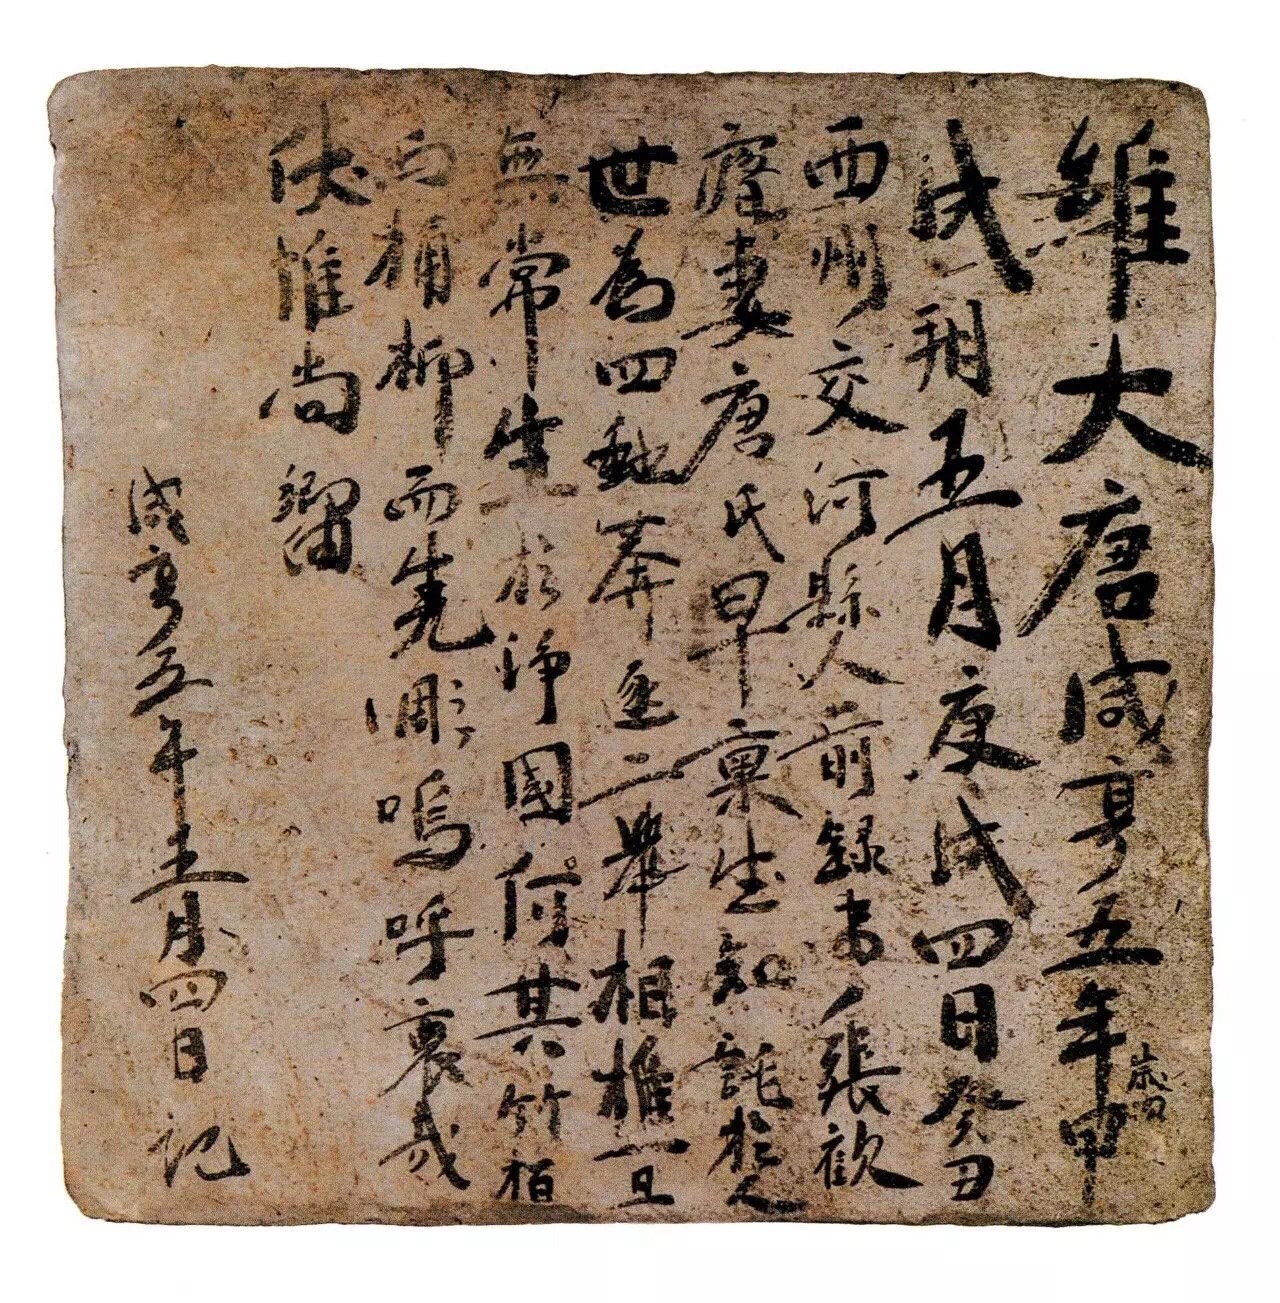 維大唐咸亨五年歲次甲
戌朔五月庚戌四日癸丑
西州交河縣人前録事張歡
妻唐氏早稟生知託於人
世為四虵奔逐二舉相摧一旦
無常生於淨國何其竹栢
桶柳而先彫嗚呼哀哉
伏惟尚饗
咸亨五年五月四日記